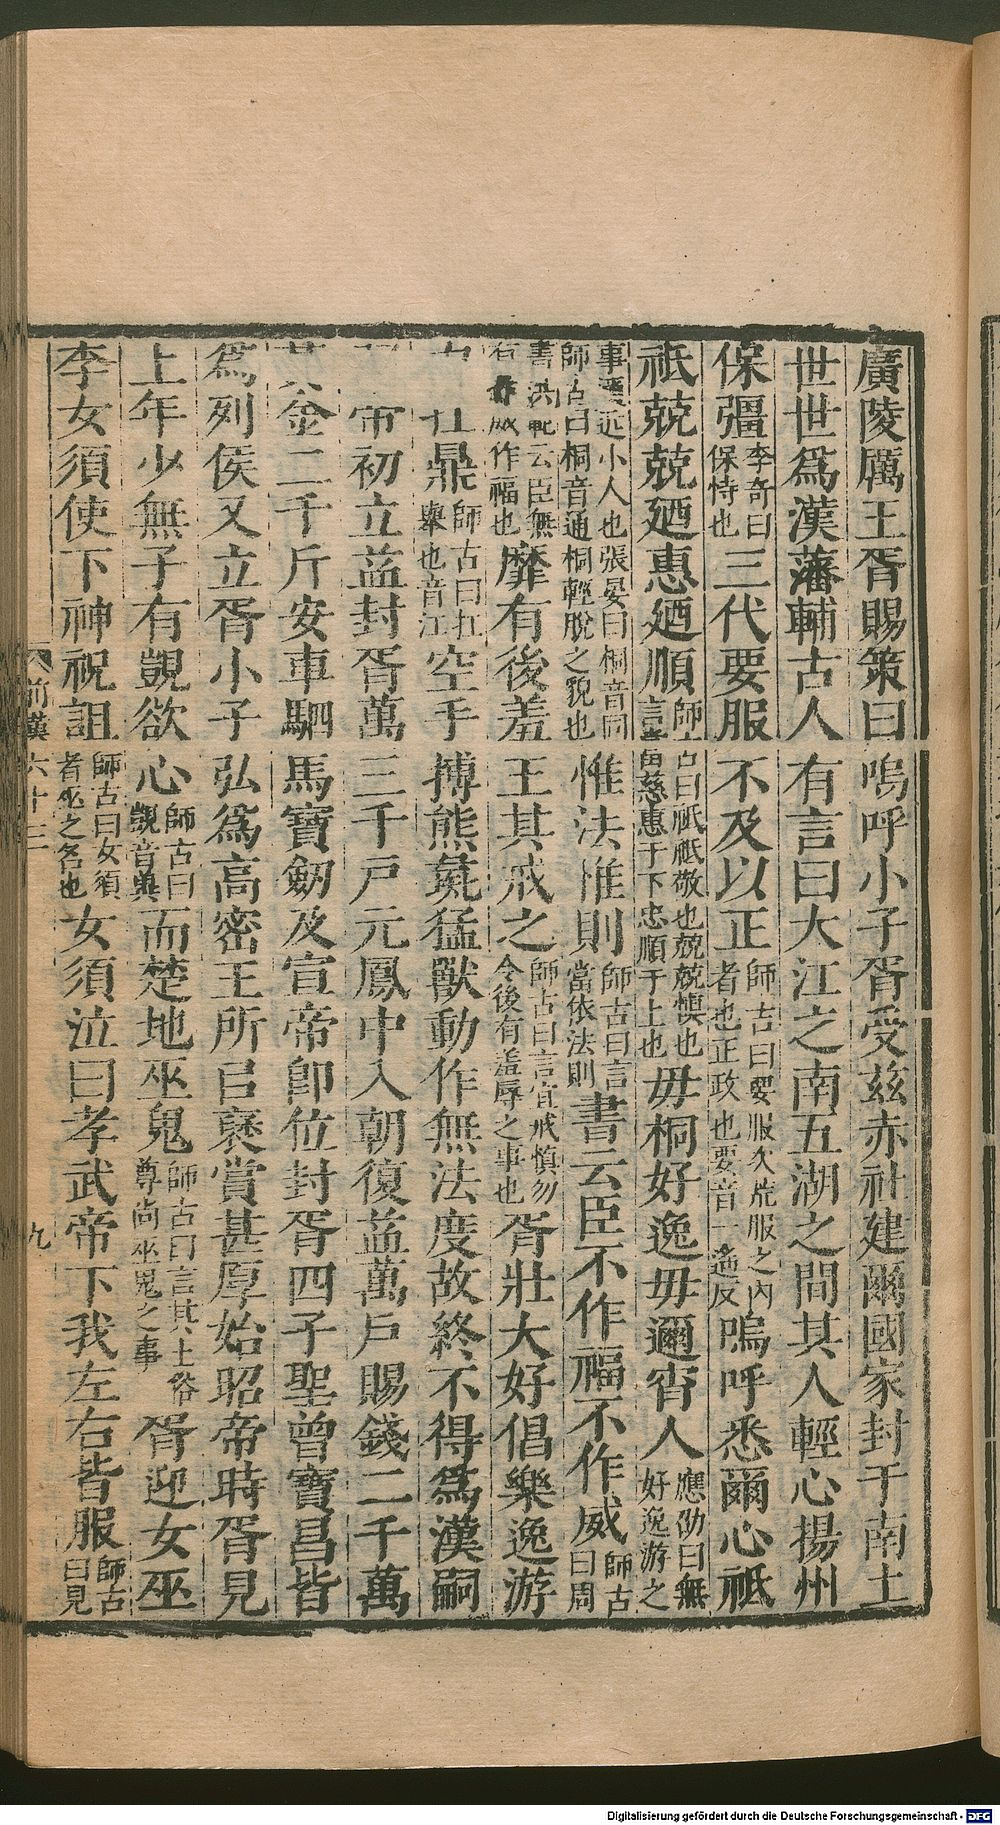 廣陵厲王胥賜策曰嗚呼小子胥受茲赤社建爾國家封于南土
世世爲漢藩輔古人有言曰大江之南五湖之間其人輕心揚州
保彊李奇曰保恃也三代要服不及以正師古曰要服次荒服之內者也正政也要音一遙反嗚呼悉爾心祗
祗兢兢廼惠廼順師古曰祗祗敬也兢兢愼也言當慈惠于下忠順于上也毋桐好逸毋邇宵人應劭曰無好逸游之
事邇近小人也張晏曰桐音同師古曰桐音通桐輕脫之貌也惟法惟則師古曰言當依法則書云臣不作福不作威師古曰周
書洪範云臣無有作威作福也靡有後羞王其戒之師古曰言宜戒愼勿令後有羞辱之事也胥壯大好倡樂逸游
力扛鼎師古曰扛舉也音江空手搏熊彘猛獸動作無法度故終不得爲漢嗣
帝初立益封胥萬三千戶元鳳中入朝復益萬戶賜錢二千萬
黃金二千斤安車駟馬寶劒及宣帝卽位封胥四子聖曾寶昌皆
爲列侯又立胥小子弘爲高密王所㠯襃賞甚厚始昭帝時胥見
上年少無子有覬欲心師古曰覬音冀而楚地巫鬼師古曰言其土俗尊尚巫鬼之事胥迎女巫
李女須使下神祝詛師古曰女須者巫之名也女須泣曰孝武帝下我左右皆服師古曰見
前漢六十三
九
Digitalisierung gefördert durch die Deutsche Forschungsgemeinschaft - DFG